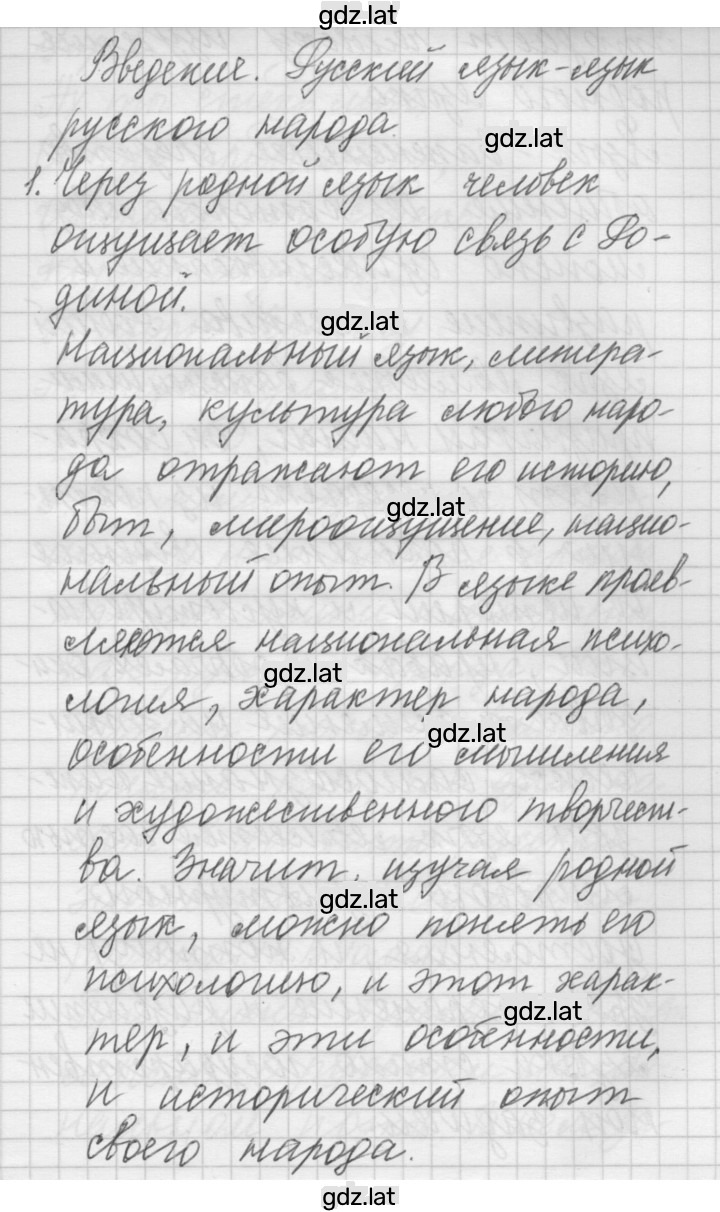 gdz.lat
Введение. Русский язык-язык
русского народа.
gdz.lat
1. Через родной язык человек
ощущает особую связь с Ро-
диной.
gdz.lat
Национальный язык, литера-
тура, культура любого наро-
да отражают его историю,
gdz.lat
быт, мироощущение, нацио-
нальный опыт. В языке прояв-
ляются национальная психо-
gdz.lat
логия, характер народа,
gdz.lat
особенности его мышления
и художественного творчест-
ва. Значит, изучая родной
gdz.lat
язык, можно понять его
психологию, и этот харак-
gdz.lat
тер, и эти особенности,
и исторический опыт
своего народа.
gdz.lat